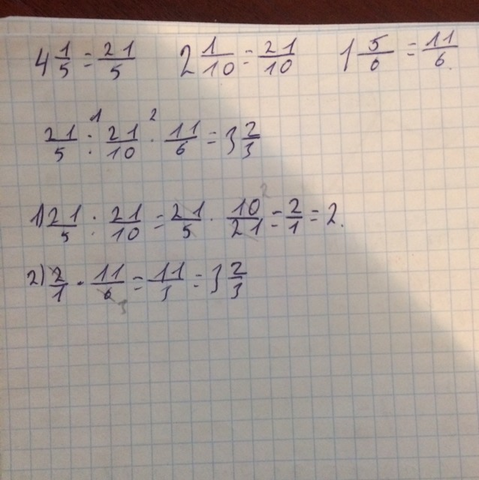 4 1/5 = 21/5  2 1/10 = 21/10  1 5/6 = 11/6.
21/5 :¹ 21/10 ·² 11/6 = 3 2/3
1) 21/5 : 21/10 = 21/5 · 10²/21 = 2/1 = 2.
2) 2/1 · 11/6₃ = 11/3 = 3 2/3